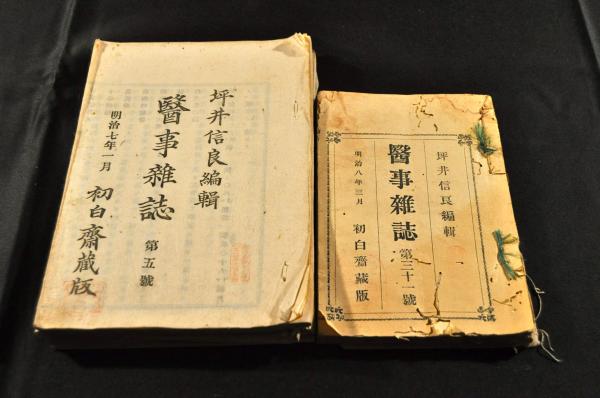 坪井信良編輯
醫事雜誌 第五號
明治七年一月 初白齋藏版
坪井信良編輯
醫事雜誌 第三十一號
明治八年三月 初白齋藏版